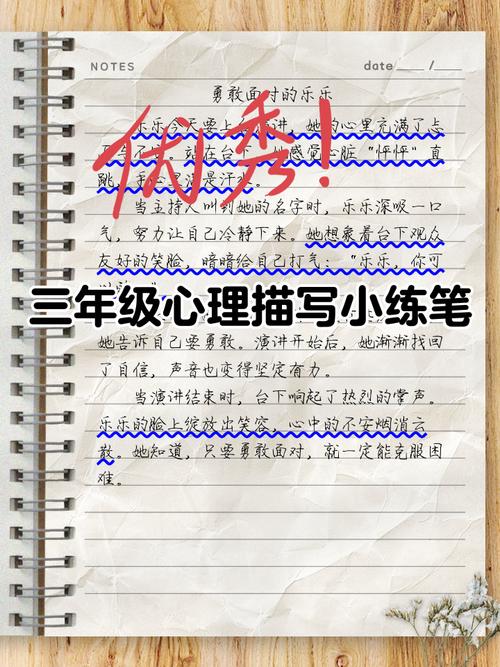 NOTES
date____/____
勇敢面对的乐乐
优秀!
乐乐今天要上 演讲,她的心里充满了忐
站在台下, 感觉心脏“怦怦”直
跳,手心里满是汗水。
当主持人叫到她的名字时,乐乐深吸一口
气,努力让自己冷静下来。她想象着台下观众
友好的笑脸,暗暗给自己打气:“乐乐,你可
三年级心理描写小练笔
她告诉自己要勇敢。演讲开始后,她渐渐找回
了自信,声音也变得坚定有力。
当演讲结束时,台下响起了热烈的掌声。
乐乐的脸上绽放出笑容,心中的不安烟消云
散。她知道,只要勇敢面对,就一定能克服困
难。